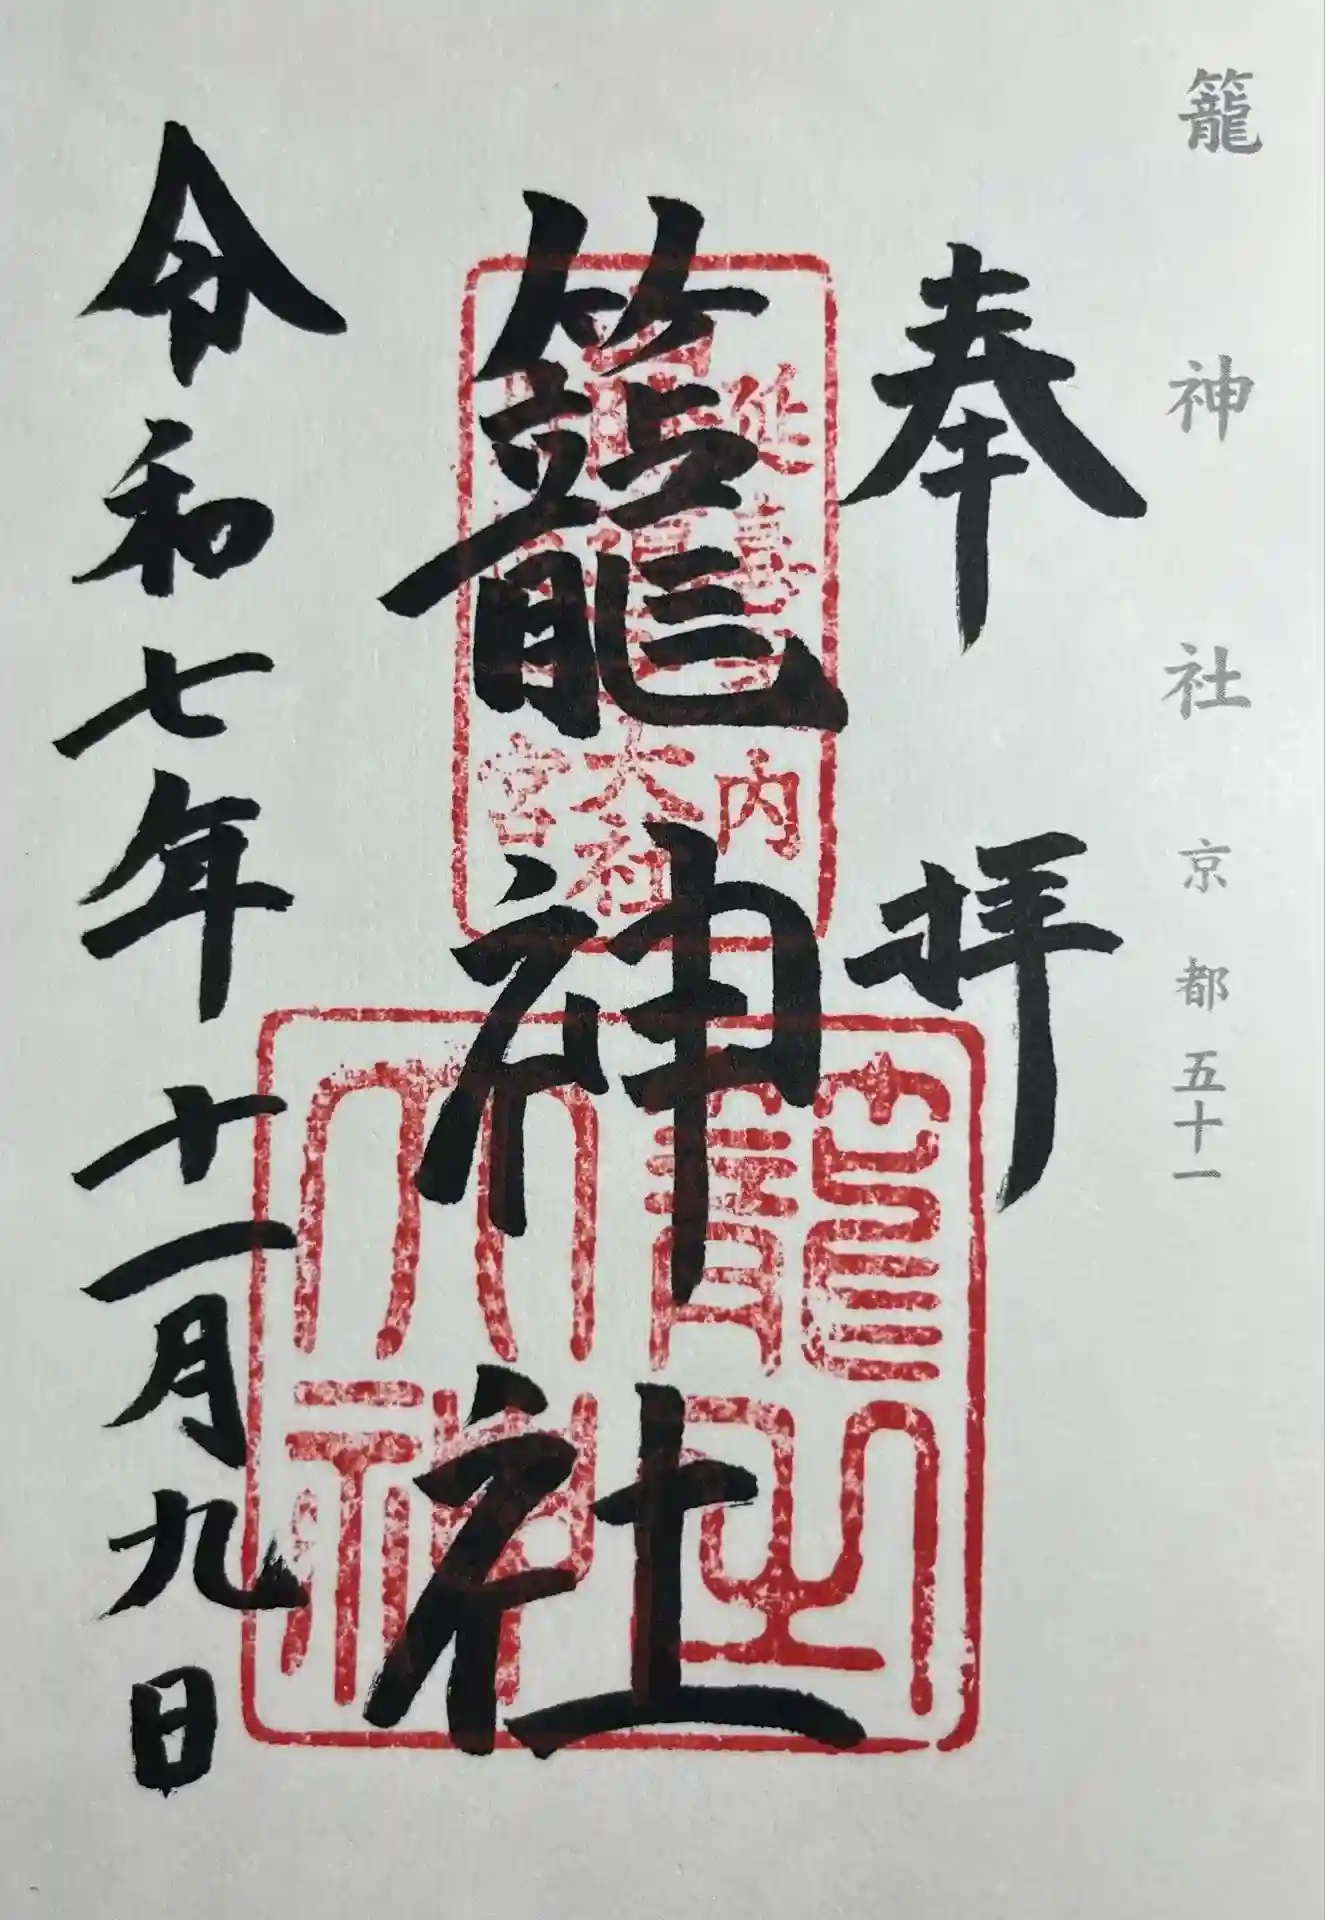 籠神社 京都 五十一
奉拝
籠神社
延喜
内
大社
宮
令和七年十一月九日